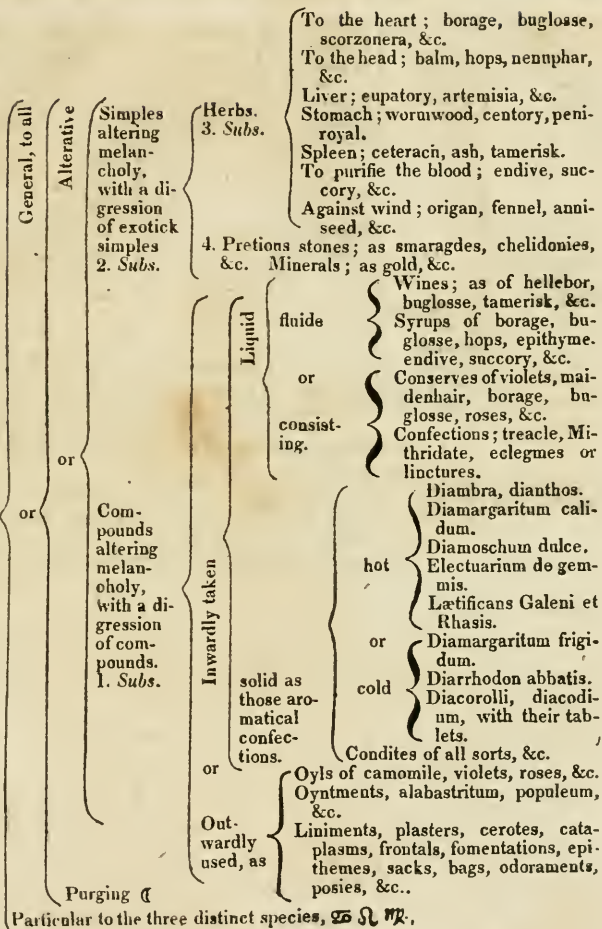 General, to all
or
Alterative
or
Simples
altering
melan-
choly,
with a di-
gression
of exotick
simples
2. Subs.
Herbs.
3. Subs.
To the heart ; borage, buglosse,
scorzonera, &c.
To the head ; balm, hops, nenuphar,
&c.
Liver ; eupatory, artemisia, &c.
Stomach ; wormwood, centory, peni-
royal.
Spleen ; ceterach, ash, tamerisk.
To purifie the blood ; endive, suc-
cory, &c.
Against wind ; origan, fennel, anni-
seed, &c.
4. Pretious stones ; as smaragdes, chelidonies,
&c. Minerals ; as gold, &c.
Com-
pounds
altering
melan-
choly,
with a di-
gression
of com-
pounds.
1. Subs.
Inwardly taken
Liquid
fluide
Wines ; as of hellebor,
buglosse, tamerisk, &c.
Syrups of borage, bu-
glosse, hops, epithyme.
endive, succory, &c.
or
consist-
ing.
Conserves of violets, mai-
denhair, borage, bu-
glosse, roses, &c.
Confections ; treacle, Mi-
thridate, eclegmes or
linctures.
solid as
those aro-
matical
confec-
tions.
hot
Diambra, dianthos.
Diamargaritum cali-
dum.
Diamoschum dulce.
Electuarium de gem-
mis.
Lætificans Galeni et
Rhasis.
or
cold
Diamargaritum frigi-
dum.
Diarrhodon abbatis.
Diacorolli, diacodi-
um, with their tab-
lets.
Condites of all sorts, &c.
or
Out-
wardly
used, as
Oyls of camomile, violets, roses, &c.
Oyntments, alabastritum, populeum,
&c.
Liniments, plasters, cerotes, cata-
plasms, frontals, fomentations, epi-
themes, sacks, bags, odoraments,
posies, &c..
Purging ☾
Particular to the three distinct species, ♋ ♌ ♍.